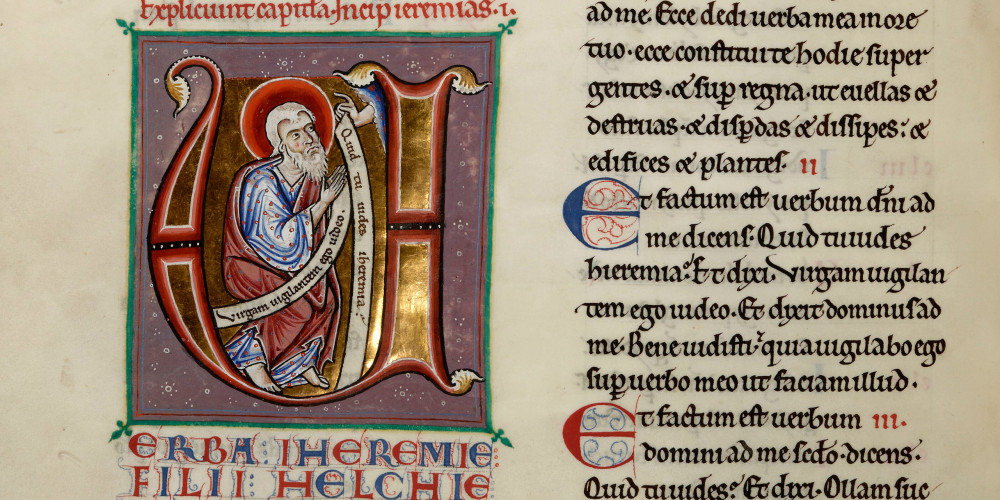 Expliciunt capitla. Incip ieremias. i.
U
Quid tu uides iheremia?
Virgam uigilantem ego uideo.
ERBA: IHEREMIE
FILII: HELCHIE
ad me. Ecce dedi uerba mea in ore
tuo. ecce constitui te hodie super
gentes. & sup regna. ut euellas &
destruas. & dispdas & dissipes: &
edifices & plantes. II
Et factum est uerbum dni ad
me dicens. Quid tu uides
hieremia? Et dixi. Virgam uigilan
tem ego uideo. Et dixit dominus ad
me. Bene uidisti. quia uigilabo ego
sup uerbo meo ut faciam illud.
Et factum est uerbum III.
domini ad me scdo. dicens.
Quid tu uides? Et dixi. Ollam suc